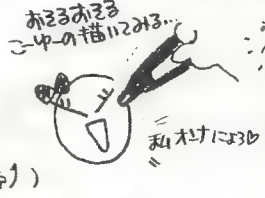 おそるおそる
こーゆーの描いてみる…
私オンナにょろ♡